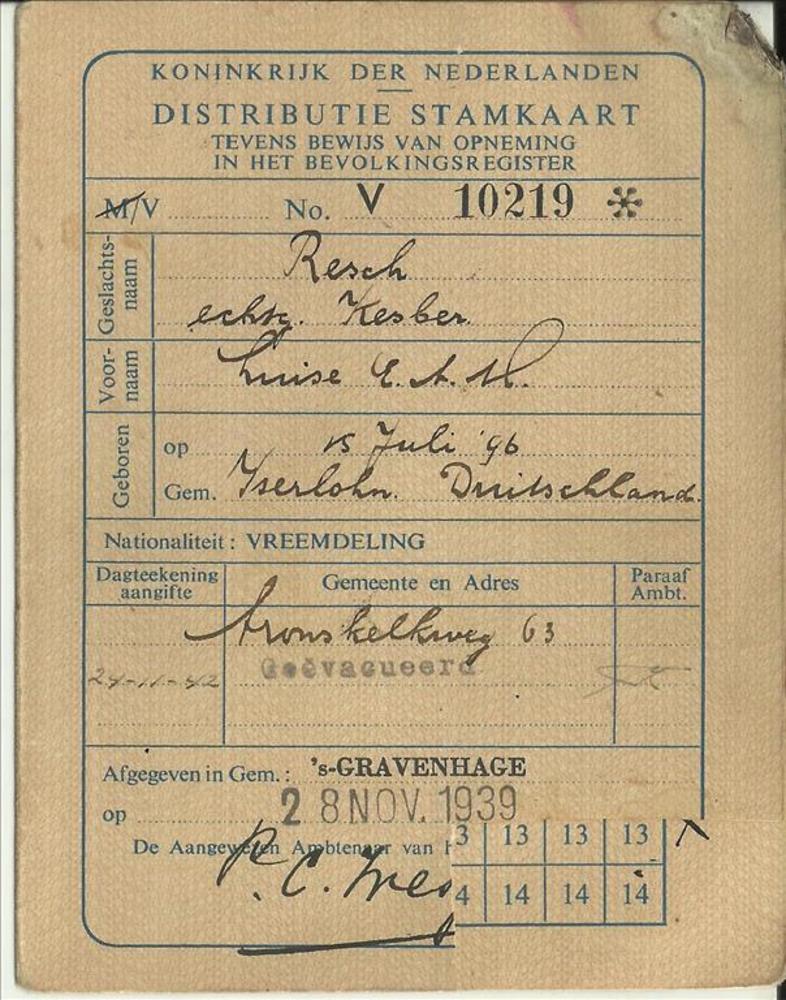 KONINKRIJK DER NEDERLANDEN
DISTRIBUTIE STAMKAART
TEVENS BEWIJS VAN OPNEMING
IN HET BEVOLKINGSREGISTER
M/V No. V 10219 *
Geslachts-naam
Resch
echtg. Kesber
Voor-naam
Luise E. A. M.
Geboren
op 15 Juli '96
Gem. Yserlohn. Duitschland.
Nationaliteit : VREEMDELING
Dagteekening aangifte Gemeente en Adres Paraaf Ambt.
Aronskelkweg 63
24-11-42 Geëvacueerd
Afgegeven in Gem.: 's-GRAVENHAGE
op 28 NOV. 1939
De Aangewezen Ambtenaar van
3 13 13 13
4 14 14 14